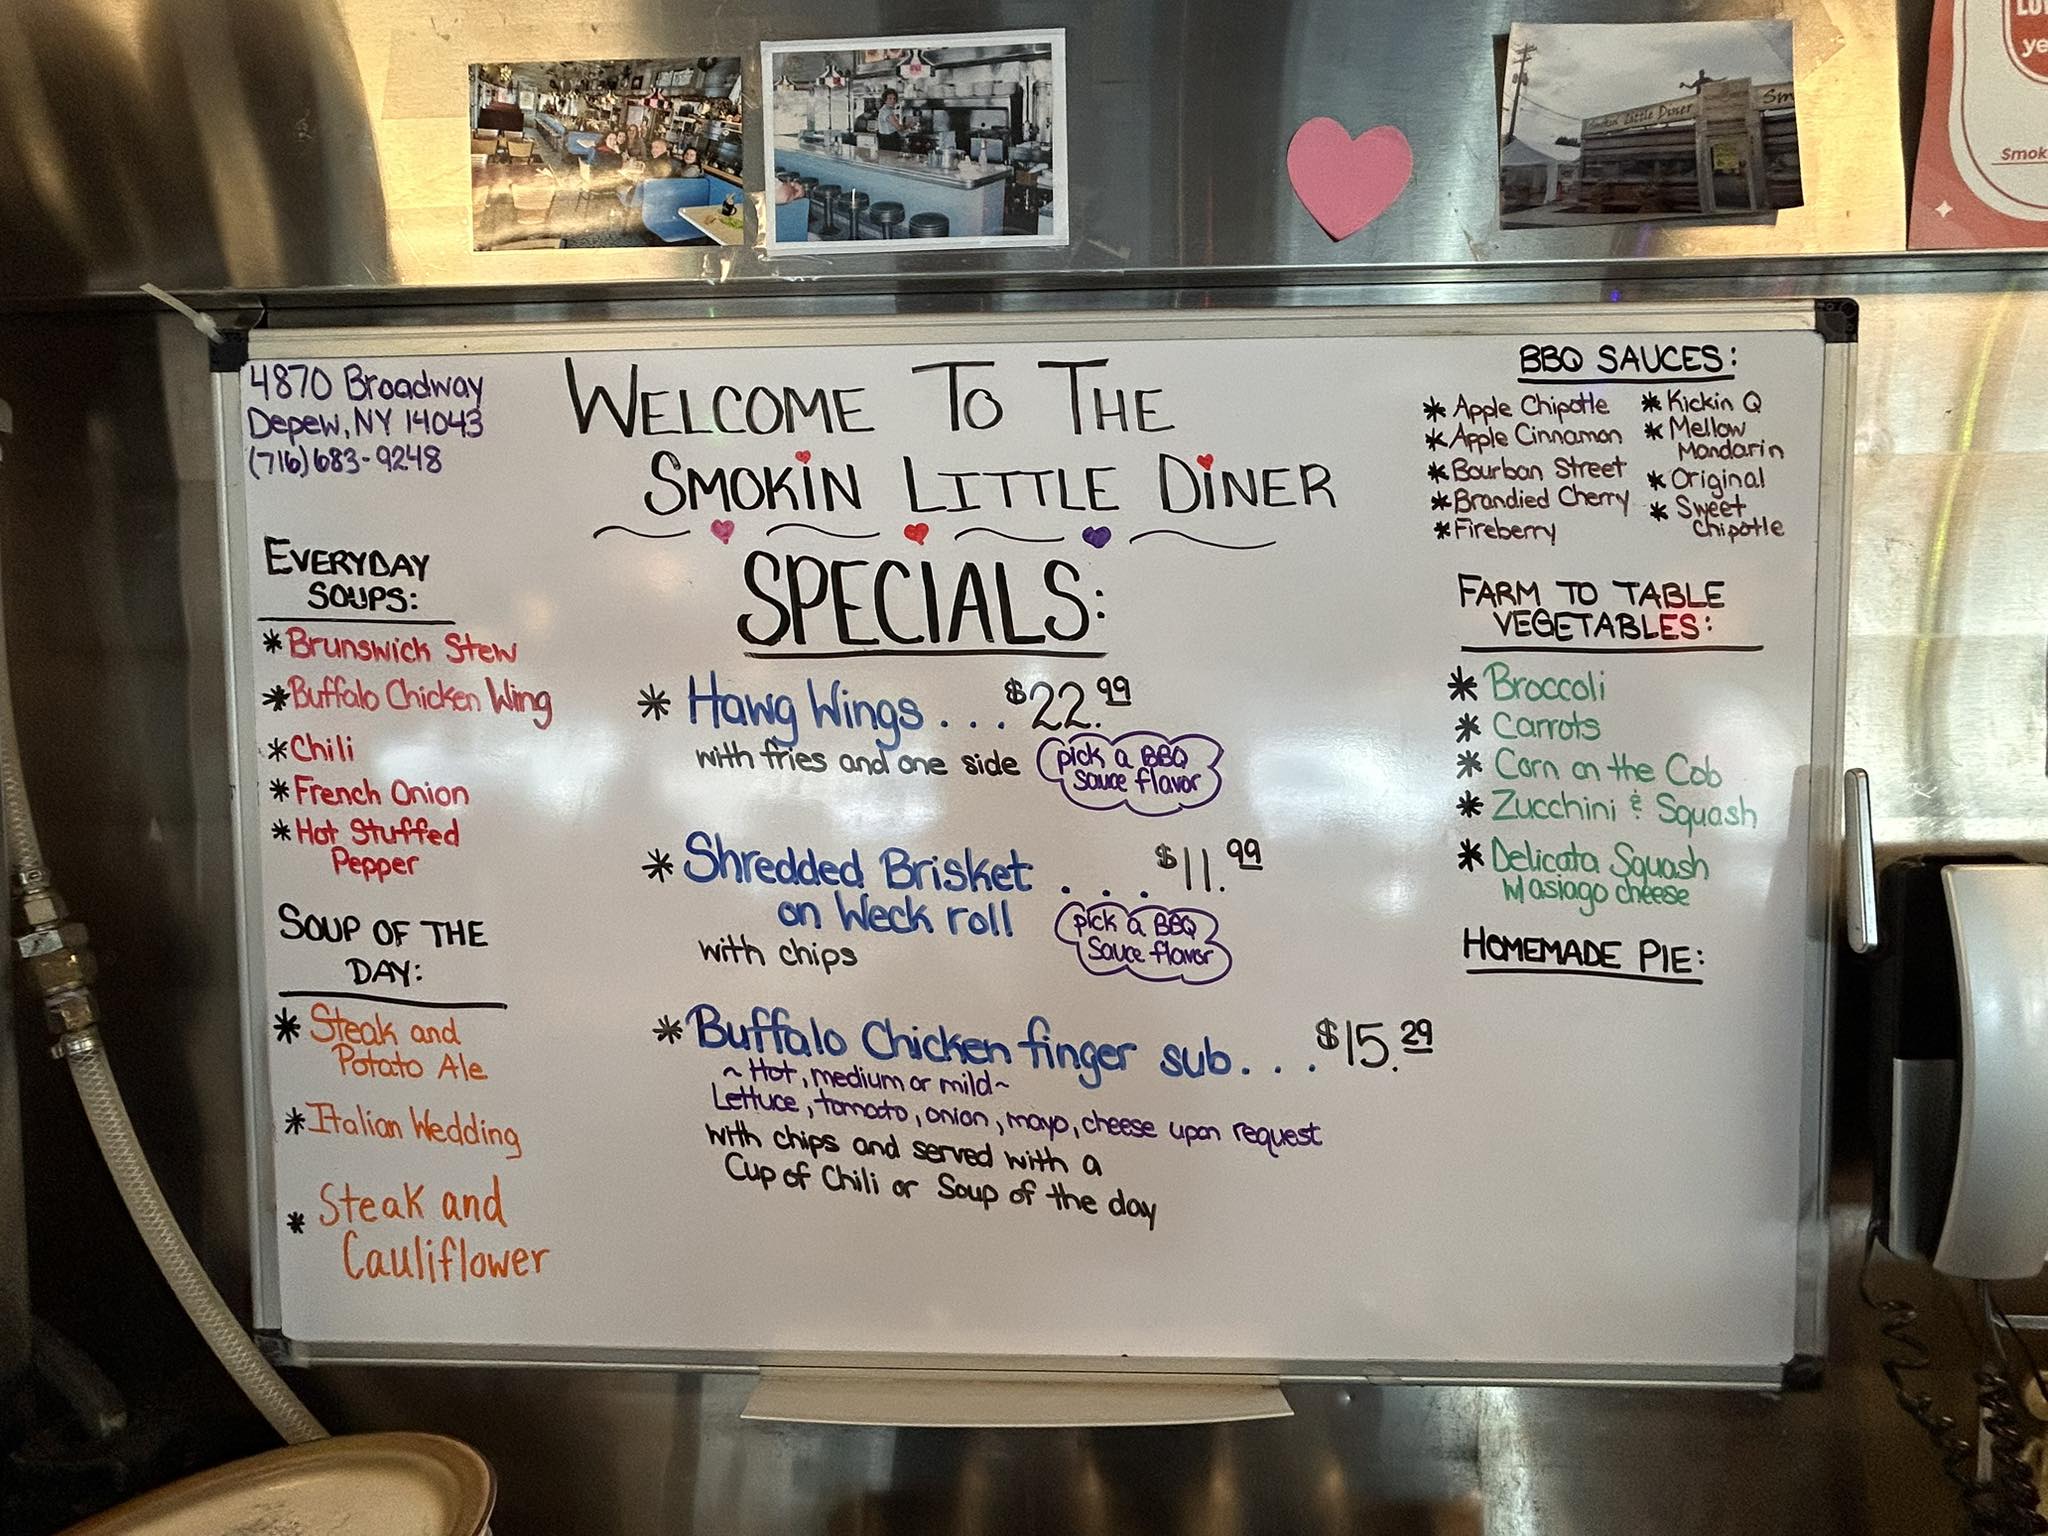 Smokin Little Diner
Sm
ye
Smok
4870 Broadway
Depew, NY 14043
(716) 683-9248
WELCOME TO THE
SMOKIN LITTLE DINER
SPECIALS:
* Hawg Wings . . . $22.99
with fries and one side
pick a BBQ
sauce flavor
* Shredded Brisket . . . $11.99
on Weck roll
with chips
pick a BBQ
Sauce flavor
* Buffalo Chicken finger sub. . . $15.29
~ Hot, medium or mild ~
Lettuce, tomato, onion, mayo, cheese upon request
with chips and served with a
Cup of Chili or Soup of the day
EVERYDAY
SOUPS:
* Brunswick Stew
* Buffalo Chicken Wing
* Chili
* French Onion
* Hot Stuffed
Pepper
SOUP OF THE
DAY:
* Steak and
Potato Ale
* Italian Wedding
* Steak and
Cauliflower
BBQ SAUCES:
* Apple Chipotle
* Apple Cinnamon
* Bourban Street
* Brandied Cherry
* Fireberry
* Kickin Q
* Mellow
Mandarin
* Original
* Sweet
Chipotle
FARM TO TABLE
VEGETABLES:
* Broccoli
* Carrots
* Corn on the Cob
* Zucchini & Squash
* Delicata Squash
w/ asiago cheese
HOMEMADE PIE: